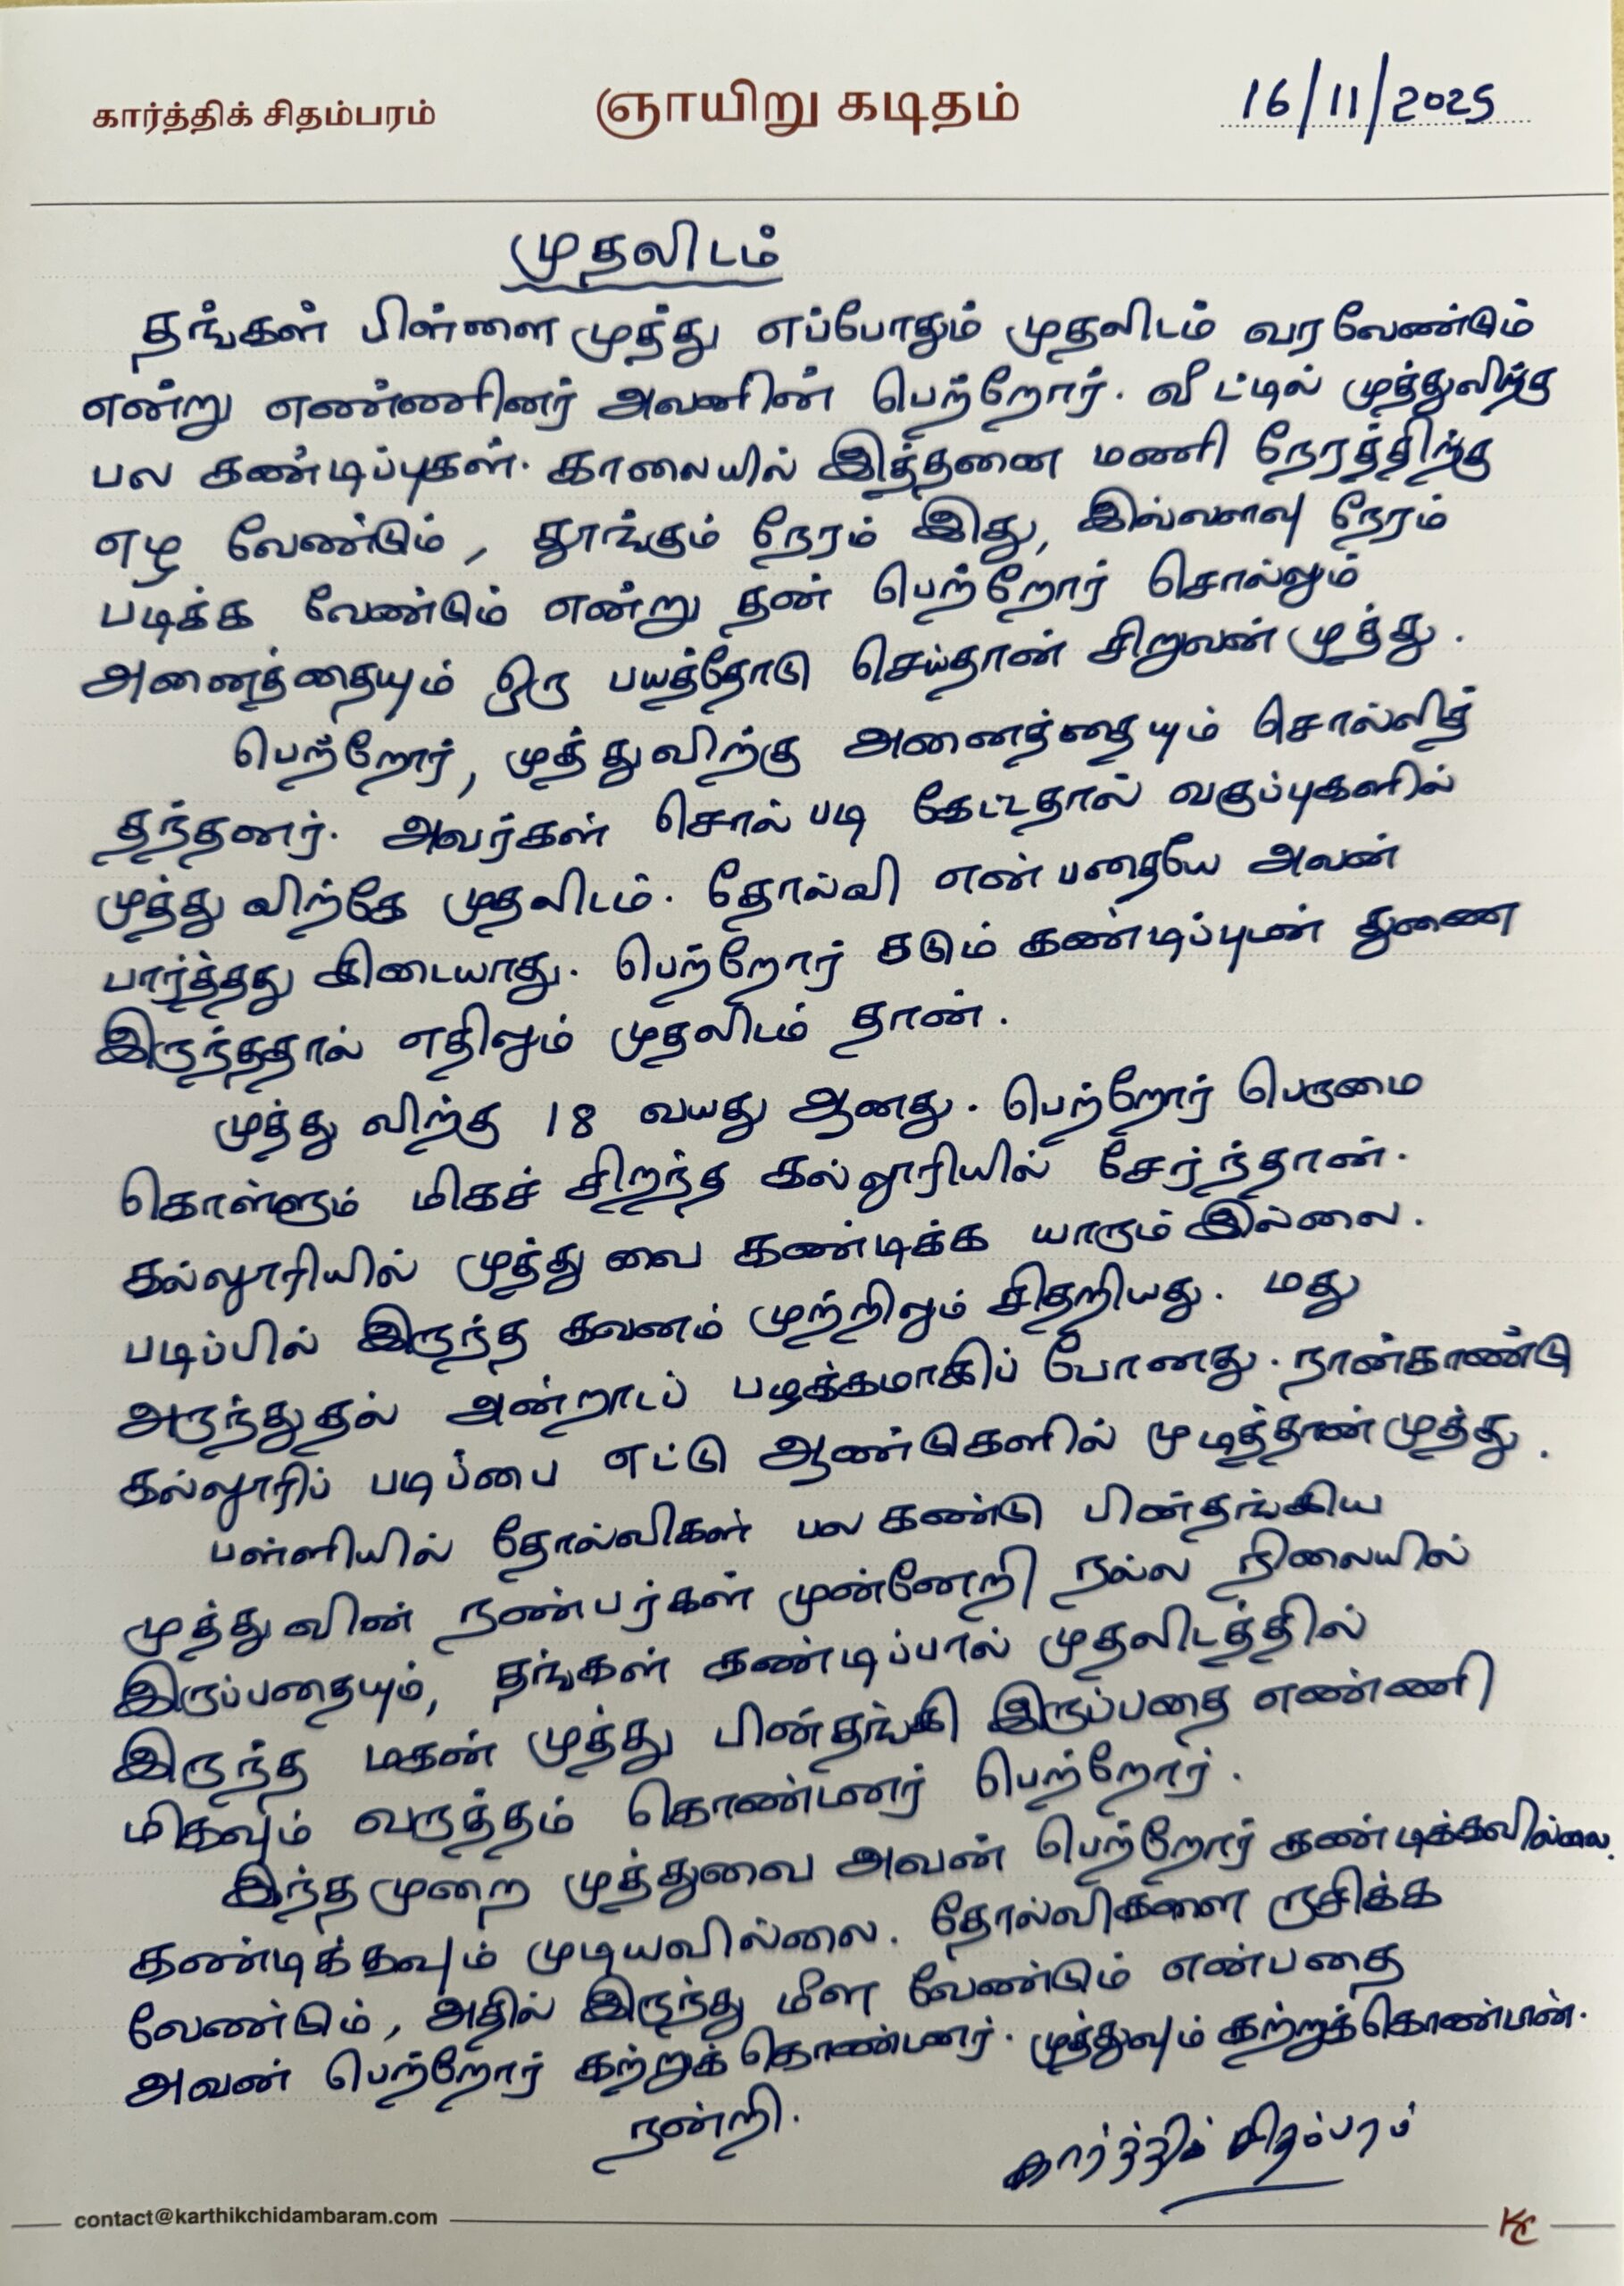 கார்த்திக் சிதம்பரம்
ஞாயிறு கடிதம்
16/11/2025
முதலிடம்
தங்கள் பிள்ளை முத்து எப்போதும் முதலிடம் வர வேண்டும்
என்று எண்ணினர் அவனின் பெற்றோர். வீட்டில் முத்துவிற்கு
பல கண்டிப்புகள். காலையில் இத்தனை மணி நேரத்திற்கு
எழ வேண்டும், தூங்கும் நேரம் இது, இவ்வளவு நேரம்
படிக்க வேண்டும் என்று தன் பெற்றோர் சொல்லும்
அனைத்தையும் ஒரு பயத்தோடு செய்தான் சிறுவன் முத்து.
பெற்றோர், முத்துவிற்கு அனைத்தையும் சொல்லித்
தந்தனர். அவர்கள் சொல் படி கேட்டதால் வகுப்புகளில்
முத்து விற்கே முதலிடம். தோல்வி என்பதையே அவன்
பார்த்தது கிடையாது. பெற்றோர் கடும் கண்டிப்புடன் துணை
இருந்ததால் எதிலும் முதலிடம் தான்.
முத்து விற்கு 18 வயது ஆனது. பெற்றோர் பெருமை
கொள்ளும் மிகச் சிறந்த கல்லூரியில் சேர்ந்தான்.
கல்லூரியில் முத்து வை கண்டிக்க யாரும் இல்லை.
படிப்பில் இருந்த கவனம் முற்றிலும் சிதறியது. மது
அருந்துதல் அன்றாடப் பழக்கமாகிப் போனது. நான்காண்டு
கல்லூரிப் படிப்பை எட்டு ஆண்டுகளில் முடித்தான் முத்து.
பள்ளியில் தோல்விகள் பல கண்டு பின்தங்கிய
முத்து வின் நண்பர்கள் முன்னேறி நல்ல நிலையில்
இருப்பதையும், தங்கள் கண்டிப்பால் முதலிடத்தில்
இருந்த மகன் முத்து பின்தங்கி இருப்பதை எண்ணி
மிகவும் வருத்தம் கொண்டனர் பெற்றோர்.
இந்த முறை முத்துவை அவன் பெற்றோர் கண்டிக்கவில்லை.
கண்டிக்கவும் முடியவில்லை. தோல்விகளை ருசிக்க
வேண்டும், அதில் இருந்து மீள வேண்டும் என்பதை
அவன் பெற்றோர் கற்றுக் கொண்டனர். முத்துவும் கற்றுக்கொண்டான்.
நன்றி.
கார்த்திக் சிதம்பரம்
contact@karthikchidambaram.com
KC